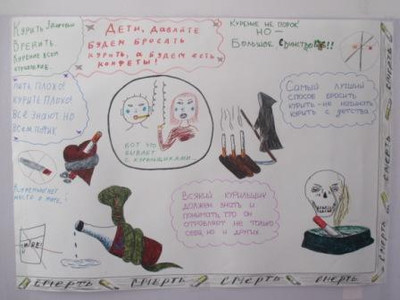 Курить здоровью
Вредить.
Дети, давайте
будем бросать
курить, а будем есть
конфеты!
Курение не порок
но —
Большое свинство!!!
Пить плохо!
Курить плохо!
Всё знают но
всем плохо
Вот что
бывает
с курильщиками...
Самый лучший
способ бросить
курить - не начинать
курить с детства.
Всякий курильщик
должен знать и
помнить, что он
отравляет не только
себя, но и других
смерть
смерть
смерть
смерть
смерть
смерть
смерть